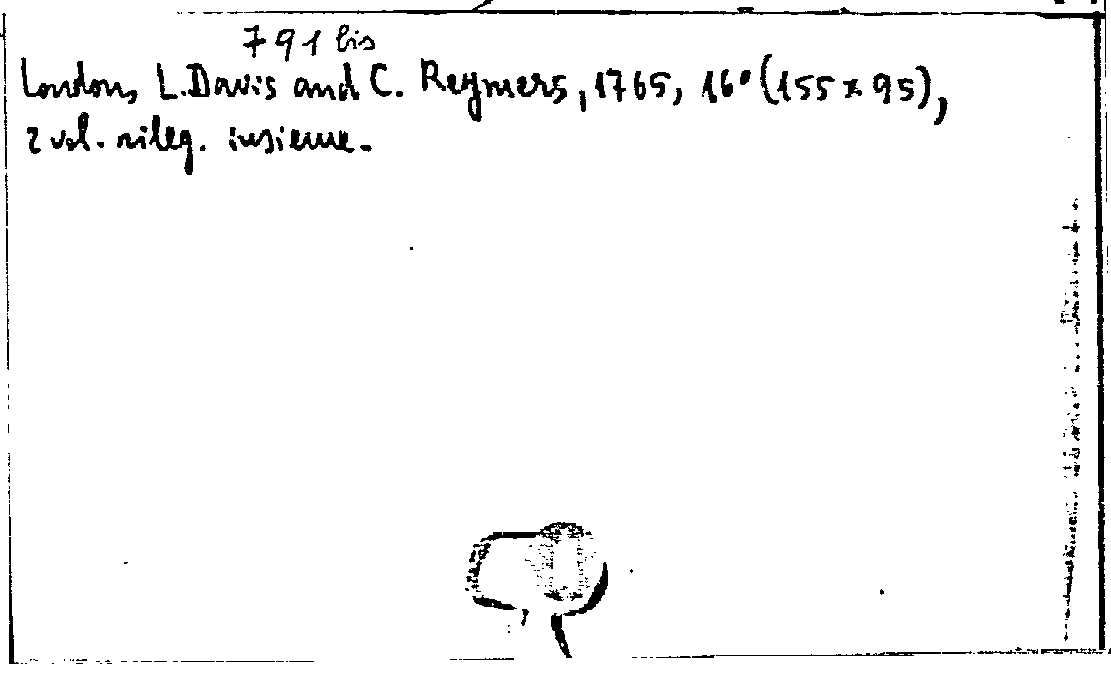 791 bis
London, L. Davis and C. Reymers, 1765, 16° (155 x 95),
2 vol. rileg. insieme.